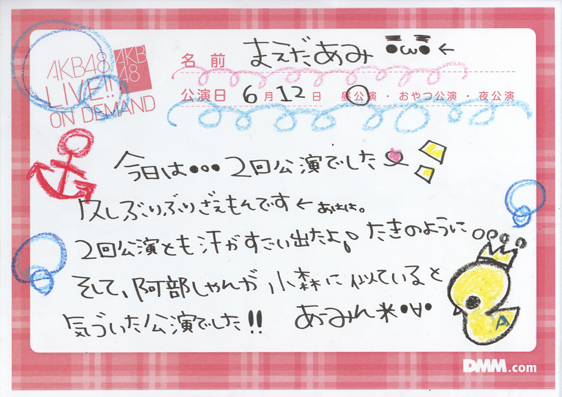 AKB48 AKB48
LIVE!!
ON DEMAND
名前 まえだあみ ←
公演日 6月12日 昼公演・おやつ公演・夜公演
今日は•••2回公演でした
久しぶりぶりざえもんです←あはは。
2回公演とも汗がすごい出たよ♪たきのように。
そして、阿部しゃんが小森に似ていると
気づいた公演でした!! あーみん*•∀•
A
DMM.com